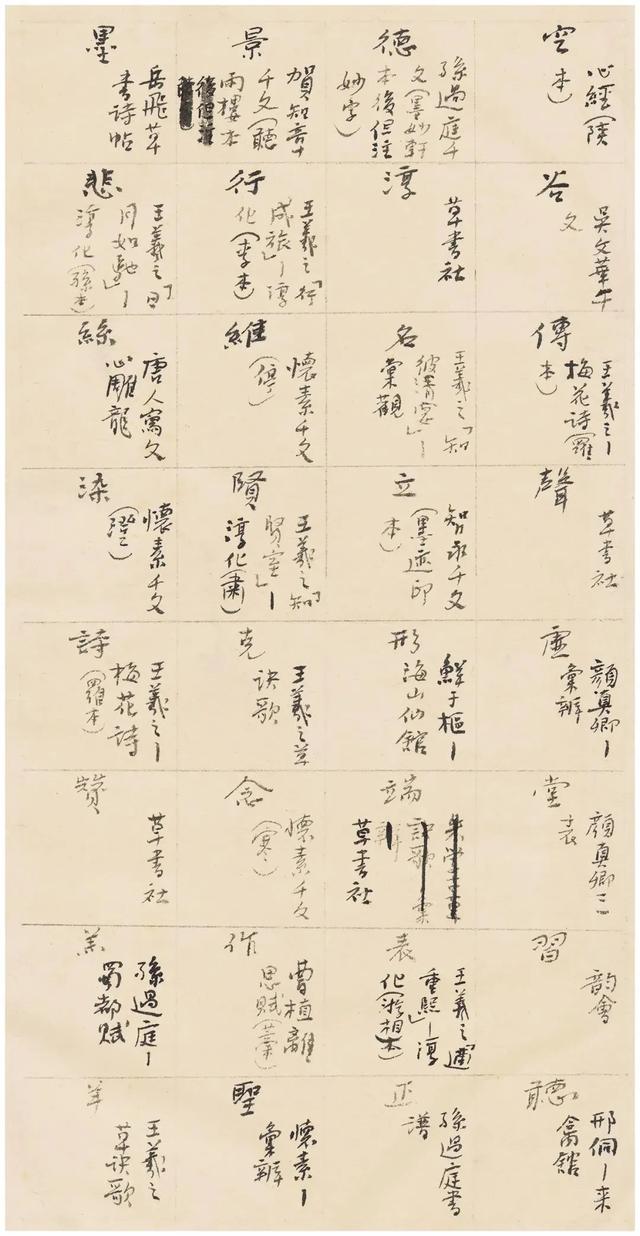 空
心經(陝
本)
谷
吳文華千
文
傳
王羲之—
梅花詩羅
本)
聲
草書社
虛
顏真卿—
彙辨
堂
顏真卿三
表
習
韵會
聽
邢侗—来
禽館
德
孫過庭千
文(墨妙軒
本後但注
妙字)
淳
草書社
名
王羲之「知
彼清晏」—
彙觀
立
智永千文
(墨迹印
本)
形
鮮于樞—
海山仙館
端
草書社
表
王羲之「
重熙」—淳
化(游相本)
正
孫過庭書
譜
景
賀知章
千文(聽
雨樓本
行
王羲之「行
成旅」—淳
化(李本)
維
懷素千文
(停)
賢
王羲之「知
賢室」—
淳化(肅)
克
王羲之草
訣歌
念
懷素千文
(寒)
作
曹植離
思賦(藁)
聖
懷素—
彙辨
墨
岳飛草
書詩帖
悲
王羲之「日
月如馳」—
淳化(孫本)
絲
唐人寫文
心雕龍
染
懷素千文
(澄)
詩
王羲之—
梅花詩
(羅本)
讚
草書社
羔
孫過庭—
蜀都賦
羊
王羲之
草訣歌